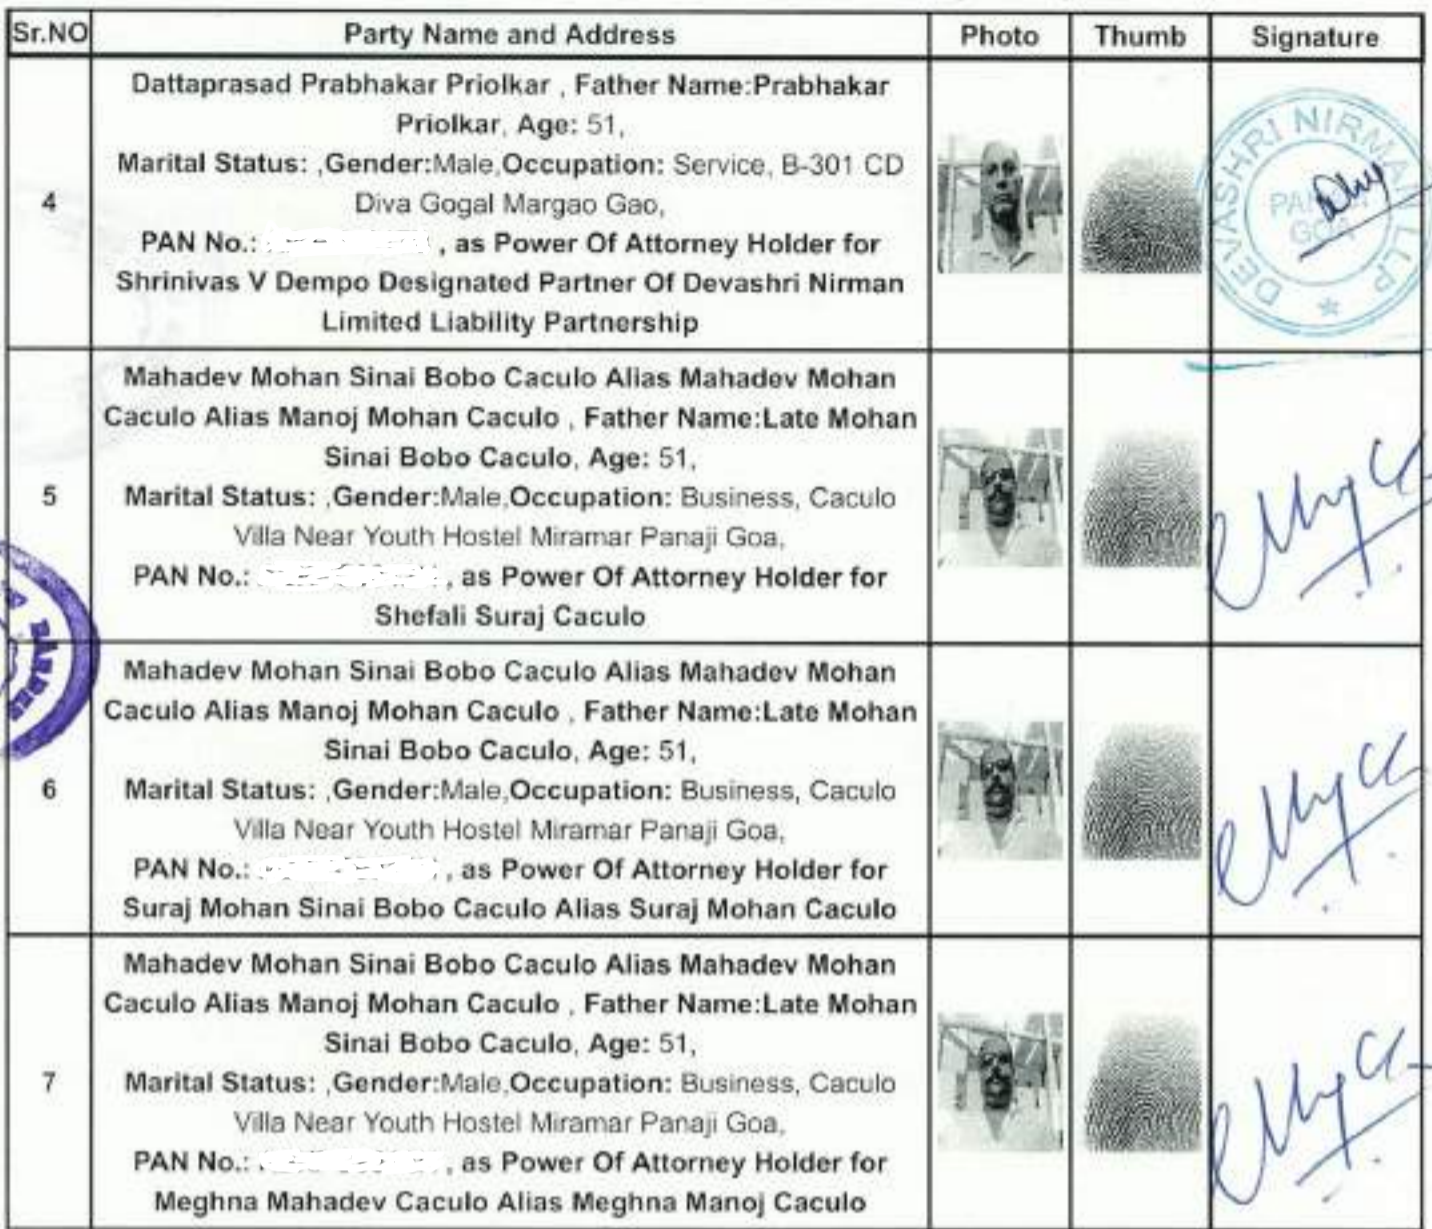 Sr.NO Party Name and Address Photo Thumb Signature
4
Dattaprasad Prabhakar Priolkar , Father Name:Prabhakar
Priolkar, Age: 51,
Marital Status: ,Gender:Male,Occupation: Service, B-301 CD
Diva Gogal Margao Gao,
PAN No.: , as Power Of Attorney Holder for
Shrinivas V Dempo Designated Partner Of Devashri Nirman
Limited Liability Partnership
DEVASHRI NIRMAN LLP
GOA
5
Mahadev Mohan Sinai Bobo Caculo Alias Mahadev Mohan
Caculo Alias Manoj Mohan Caculo , Father Name:Late Mohan
Sinai Bobo Caculo, Age: 51,
Marital Status: ,Gender:Male,Occupation: Business, Caculo
Villa Near Youth Hostel Miramar Panaji Goa,
PAN No.: , as Power Of Attorney Holder for
Shefali Suraj Caculo
BARDEZ
6
Mahadev Mohan Sinai Bobo Caculo Alias Mahadev Mohan
Caculo Alias Manoj Mohan Caculo , Father Name:Late Mohan
Sinai Bobo Caculo, Age: 51,
Marital Status: ,Gender:Male,Occupation: Business, Caculo
Villa Near Youth Hostel Miramar Panaji Goa,
PAN No.: , as Power Of Attorney Holder for
Suraj Mohan Sinai Bobo Caculo Alias Suraj Mohan Caculo
7
Mahadev Mohan Sinai Bobo Caculo Alias Mahadev Mohan
Caculo Alias Manoj Mohan Caculo , Father Name:Late Mohan
Sinai Bobo Caculo, Age: 51,
Marital Status: ,Gender:Male,Occupation: Business, Caculo
Villa Near Youth Hostel Miramar Panaji Goa,
PAN No.: , as Power Of Attorney Holder for
Meghna Mahadev Caculo Alias Meghna Manoj Caculo